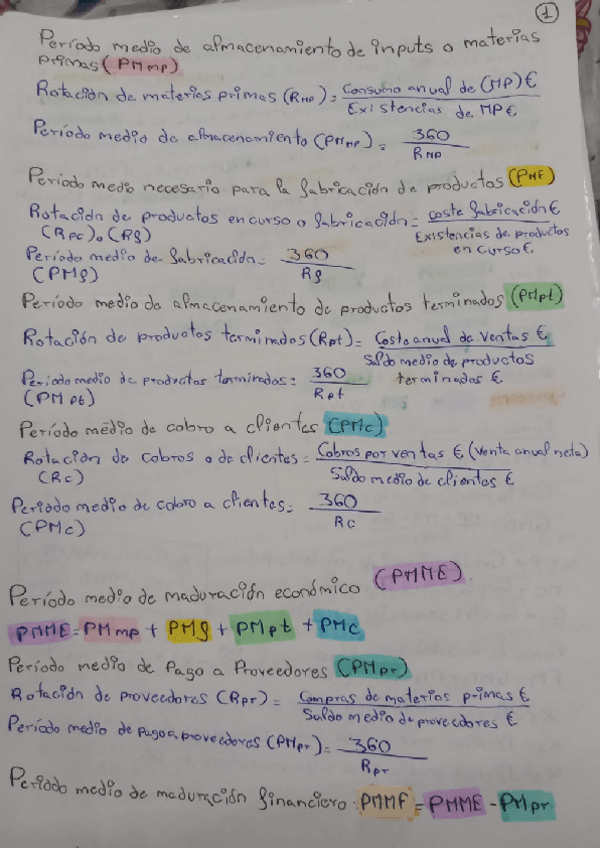 1
Período medio de almacenamiento de inputs o materias
primas (PMmp)
Rotación de materias primas (RMP) = Consumo anual de (MP) €
Existencias de MP €
Período medio de almacenamiento (PMMP) = 360
RMP
Período medio necesario para la fabricación de productos (PMF)
Rotación de productos en curso o fabricación = coste fabricación €
(Rpc) o (Rf) Existencias de productos
en curso €
Período medio de fabricación = 360
(PMf) Rf
Período medio de almacenamiento de productos terminados (PMpt)
Rotación de productos terminados (Rpt) = Costo anual de ventas €
Saldo medio de productos
terminados €
Período medio de productos terminados = 360
(PMpt) Rpt
Período medio de cobro a clientes (PMc)
Rotación de cobros o de clientes = Cobros por ventas € (venta anual neta)
(Rc) Saldo medio de clientes €
Periodo medio de cobro a clientes = 360
(PMc) Rc
Período medio de maduración económico (PMME)
PMME = PMmp + PMf + PMpt + PMc
Período medio de Pago a Proveedores (PMpr)
Rotación de proveedores (Rpr) = Compras de materias primas €
Saldo medio de proveedores €
Período medio de pago a proveedores (PMpr) = 360
Rpr
Periodo medio de maduración financiero: PMMF = PMME - PMpr